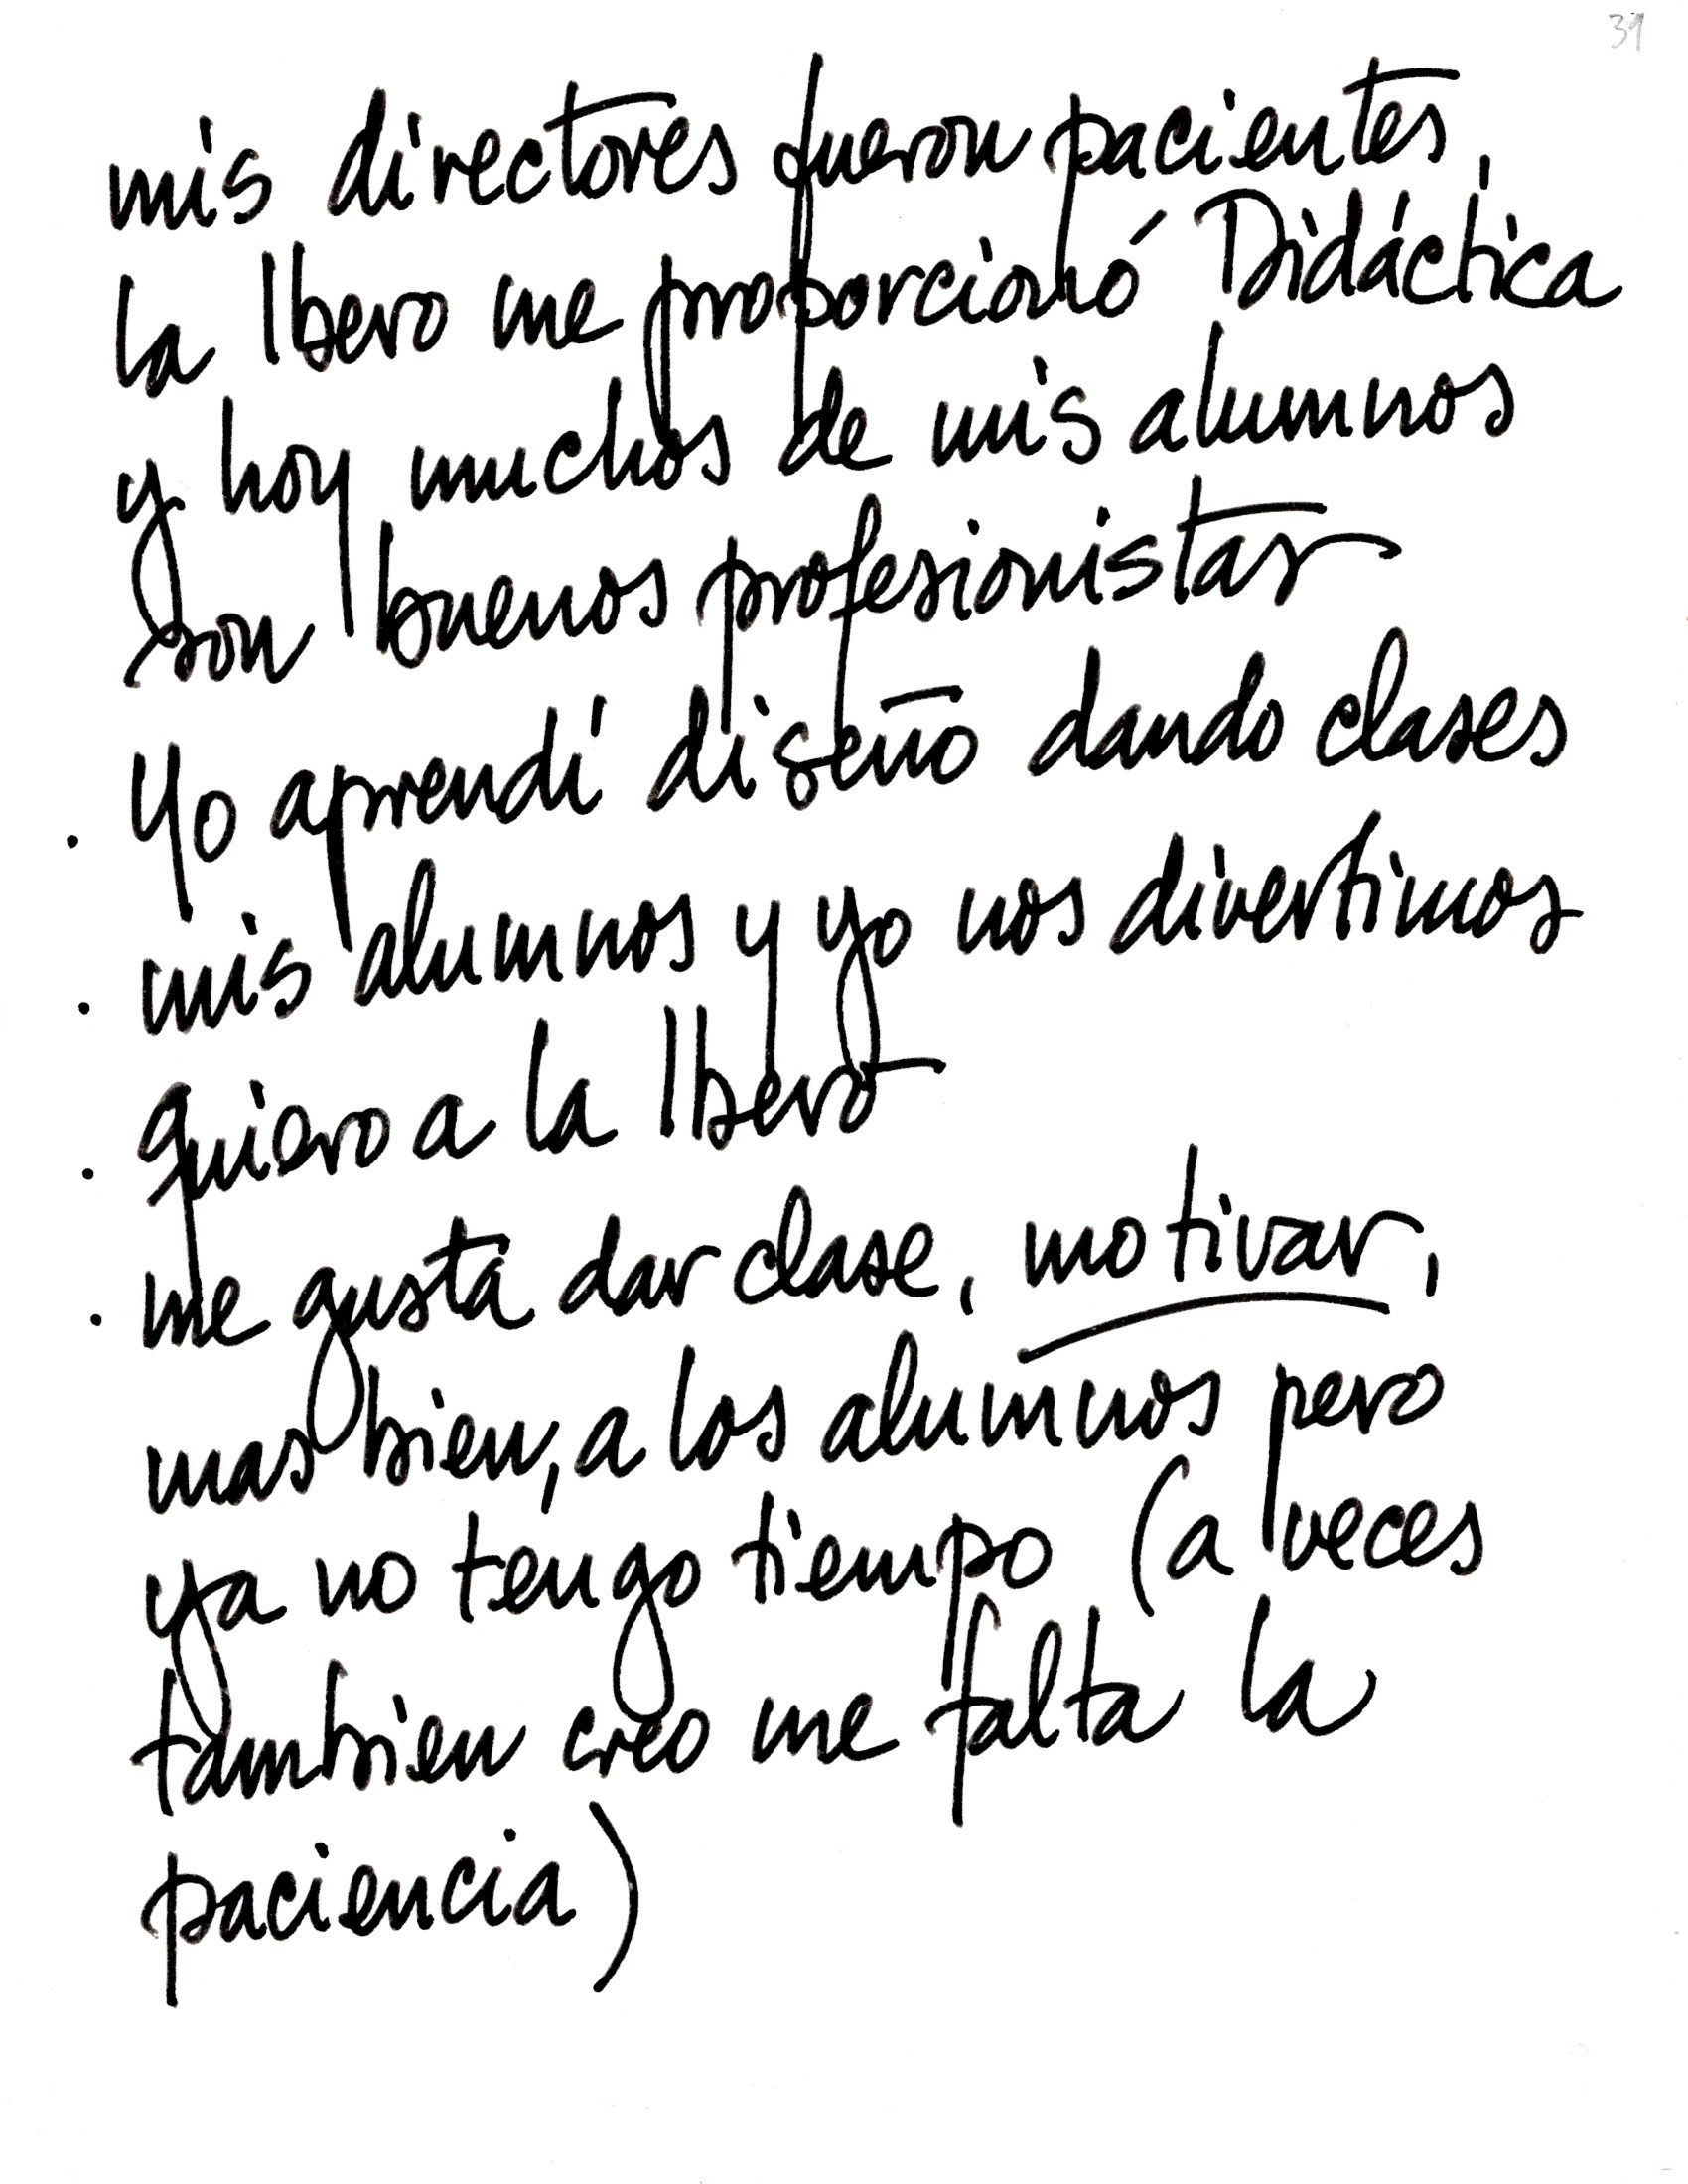 31
mis directores fueron pacientes,
la Ibero me proporcionó Didáctica
y hoy muchos de mis alumnos
son buenos profesionistas
. Yo aprendí diseño dando clases
. mis alumnos y yo nos divertimos
. quiero a la Ibero
. me gusta dar clase, motivar,
mas bien, a los alumnos pero
ya no tengo tiempo (a veces
tambien creo me falta la
paciencia)